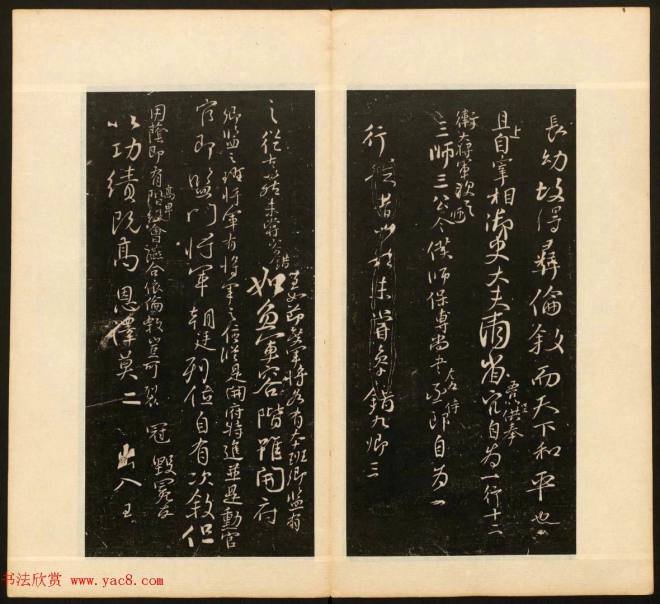 長幼故得彝倫敘而天下和平也
且上自宰相御史大夫兩省五品供奉官自為一行十二
衛大將軍次之
三師三公令僕師保傅尚書左右丞侍郎自為一
行從古以然未嘗參錯九卿三
之從古然未嘗參錯
至如節度軍將各有本班卿監有
如魚軍容階雖開府
卿監之班將軍有將軍之位縱是開府特進並是勳官
官即監門將軍朝廷列位自有次敘但
用蔭即有高卑會讌合依倫敘豈可裂冠毀冕反
以功績既高恩澤莫二出入王
书法欣赏 www.yac8.com